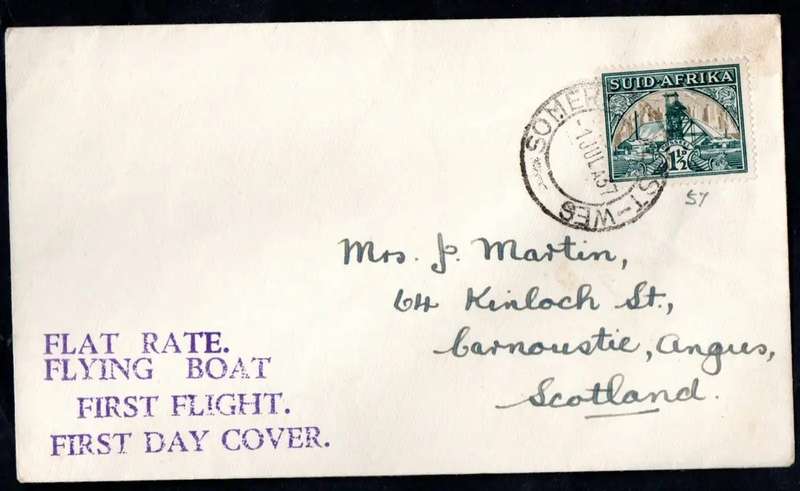 SUID-AFRIKA
1½
1 JUL A 37
57
Mrs. J. Martin,
64 Kinloch St.,
Carnoustie, Angus,
Scotland.
FLAT RATE.
FLYING BOAT
FIRST FLIGHT.
FIRST DAY COVER.